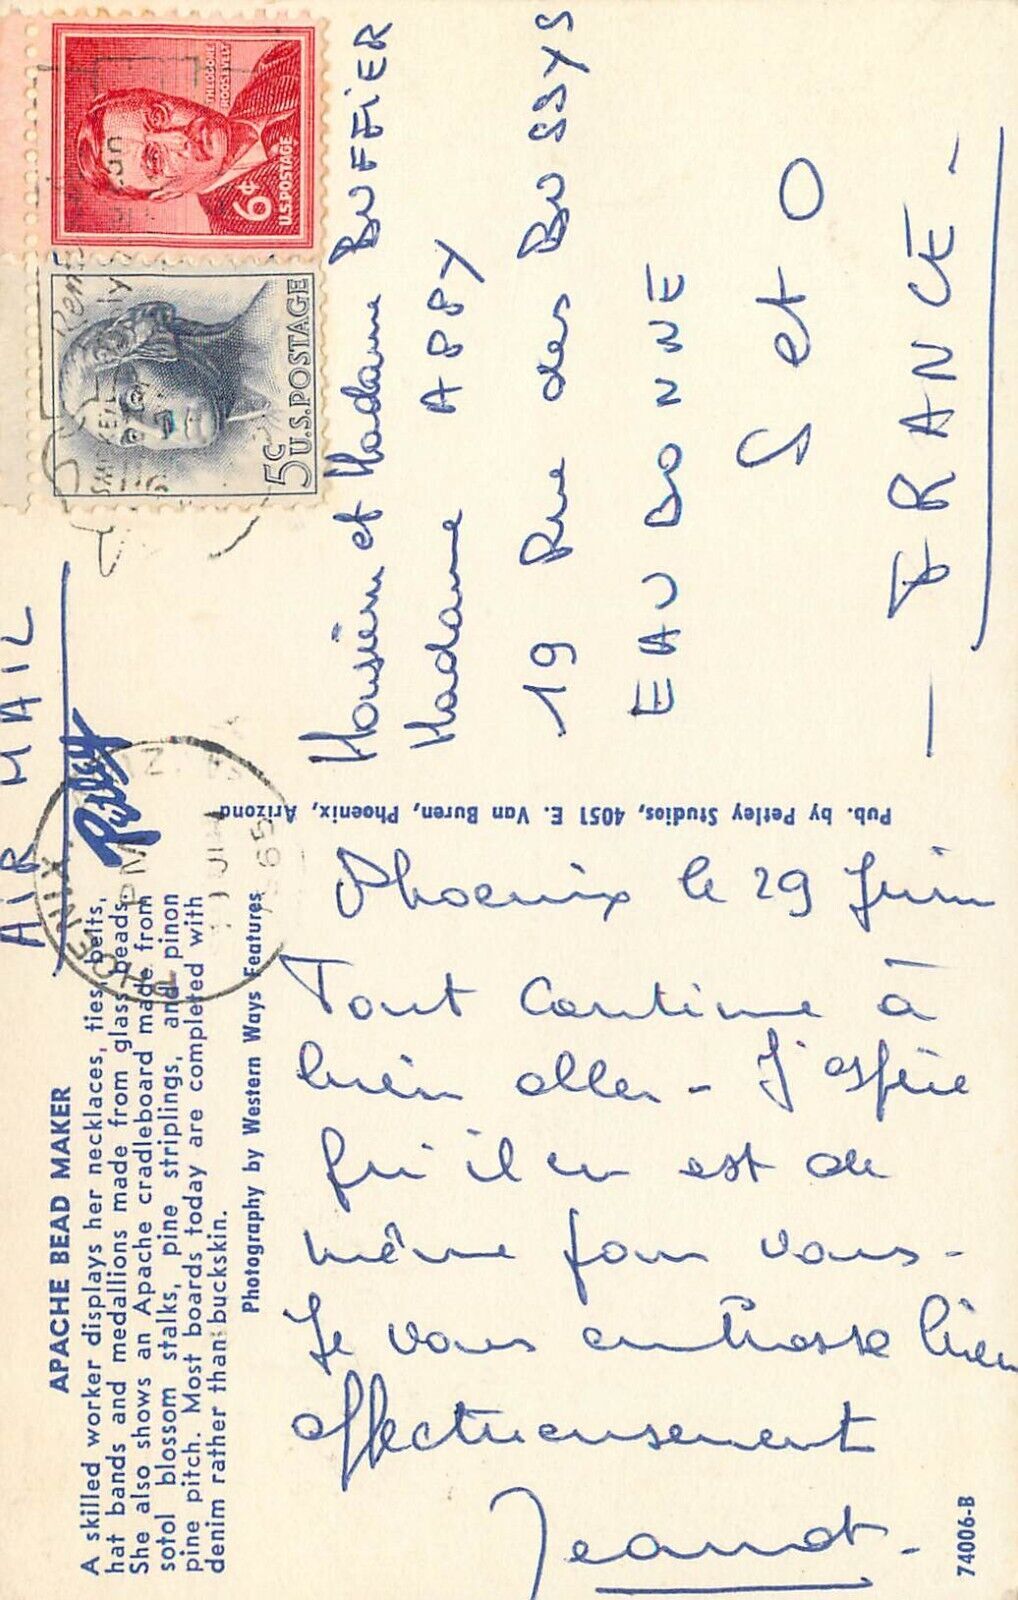 APACHE BEAD MAKER
A skilled worker displays her necklaces, ties, belts,
hat bands and medallions made from glass beads.
She also shows an Apache cradleboard made from
sotol blossom stalks, pine striplings, and pinon
pine pitch. Most boards today are completed with
denim rather than buckskin.
Photography by Western Ways Features
Phoenix le 29 Juin
Tout continue à
bien aller - J'espère
qu'il en est de
même pour vous -
Je vous embrasse bien
affectueusement
Jeannot.
74006-B
Pub. by Petley Studios, 4051 E. Van Buren, Phoenix, Arizona
AIR MAIL
Petley
PHOENIX, ARIZ.
PM
1965
THEODORE
ROOSEVELT
6¢
U.S. POSTAGE
5¢ U.S. POSTAGE
Monsieur et Madame BUFFIER
Madame APPY
19 Rue des BUSSYS
EAUBONNE
S et O
- FRANCE -